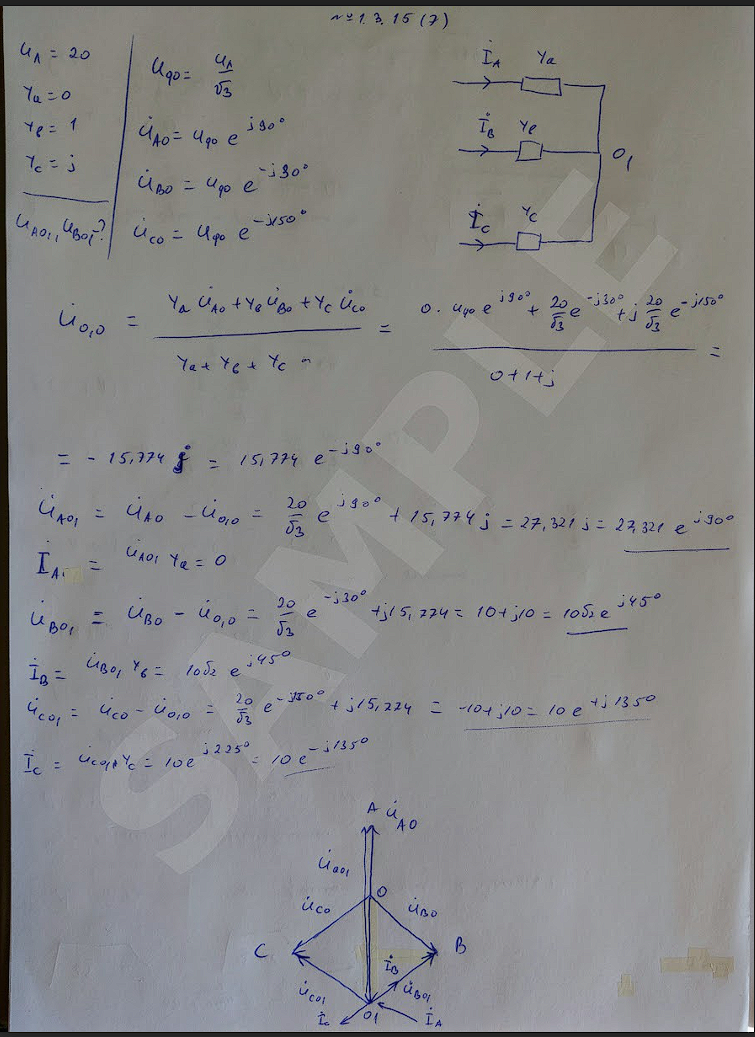 № 1.3.15 (7)
U_Л = 20
Y_a = 0
Y_в = 1
Y_c = j
U̇_AO₁, U̇_BO₁ - ?
U_фо = U_Л / √3
U̇_AO = U_фо e^{j90°}
U̇_BO = U_фо e^{-j30°}
U̇_CO = U_фо e^{-j150°}
İ_A Y_a
İ_B Y_в
O₁
İ_C Y_C
U̇_O₁O = (Y_a U̇_AO + Y_в U̇_BO + Y_c U̇_CO) / (Y_a + Y_в + Y_c) = (0 · U_фо e^{j90°} + 20/√3 e^{-j30°} + j 20/√3 e^{-j150°}) / (0 + 1 + j) =
= - 15,774 j = 15,774 e^{-j90°}
U̇_AO₁ = U̇_AO - U̇_O₁O = 20/√3 e^{j90°} + 15,774 j = 27,321 j = 27,321 e^{j90°}
İ_A = U̇_AO₁ Y_a = 0
U̇_BO₁ = U̇_BO - U̇_O₁O = 20/√3 e^{-j30°} + j15,774 = 10 + j10 = 10√2 e^{j45°}
İ_B = U̇_BO₁ Y_в = 10√2 e^{j45°}
U̇_CO₁ = U̇_CO - U̇_O₁O = 20/√3 e^{-j150°} + j15,774 = -10 + j10 = 10 e^{+j135°}
İ_C = U̇_CO₁ Y_c = 10 e^{j225°} = 10 e^{-j135°}
A U̇_AO
U̇_AO₁
O
U̇_CO U̇_BO
C B
İ_B
U̇_CO₁ U̇_BO₁
İ_C O₁ İ_A
SAMPLE